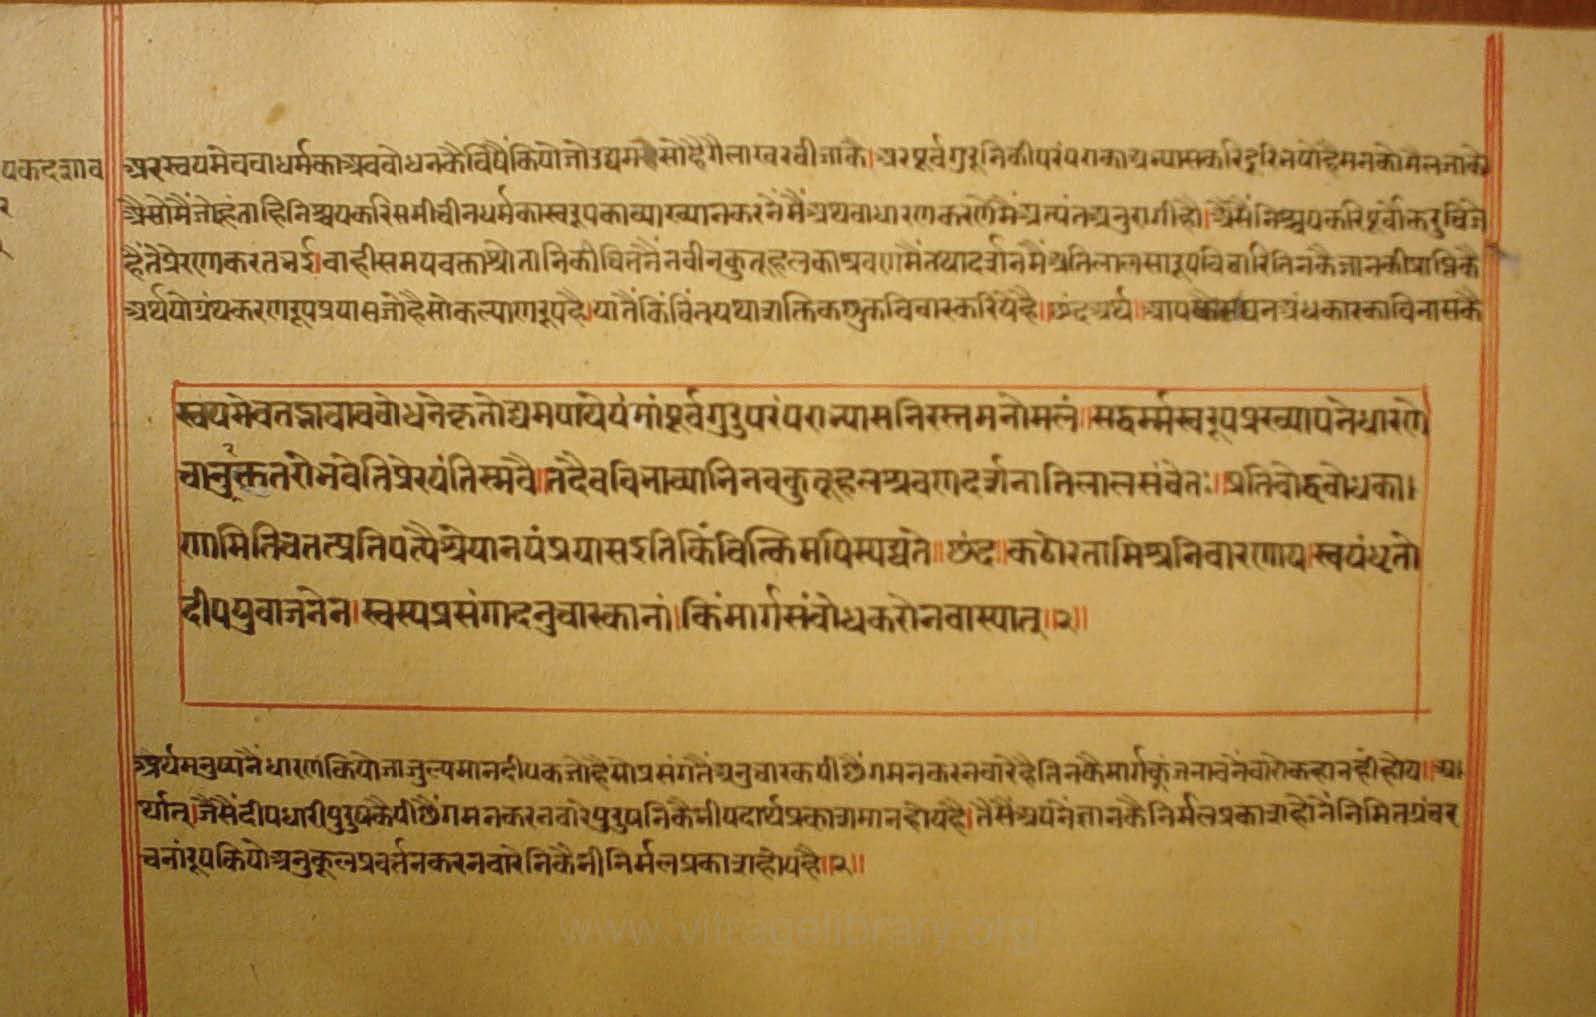 पकदशाव अरस्वयमेववाधर्मकाअवबोधनकैविषैंकियोजोउद्यमसोहैगैलाखरवीजाकै।अरपूर्वगुरुनिकीपरंपराकाअन्यासकरिदूरिनयोहैमनकोमैलजाकै
र ऐसोमैंजोहूंताहिनिश्चयकरिसमीचीनधर्मकास्वरूपकाव्याख्यानकरनेंमैंअथवाधारणकरणेंमैंअत्यंतअनुरागीहौ।ऐसैंनिश्चयकरिपूर्वोक्तदुविजे
हैंतेप्रेरणकरतनई।वाहीसमयवक्ताश्रोतानिकीचितनैंनवीनकुतूहलकाश्रवणमैंतथादर्शनमैंअतिलालसारूपविचारितिनकैज्ञानकीप्राप्तिकै
अर्थयोग्रंथकरणरूपप्रयासजोहैसोकल्याणरूपहै।यातैंकिंचिंत्यथाशक्तिकछुकविचारकरियेहै॥छंदअर्थ॥आप घनअंधकारकाविनासकै
स्वयमेवतद्भावावबोधनेकृतोद्यमपाथेयंमांपूर्वगुरुपरंपरान्यासनिरस्तमनोमलं॥सद्धर्म्मस्वरूपप्रख्यापनेधारणे
चानुरक्ततरोनवेतिप्रेरयंतिस्मवै॥तदैवविनाव्यानिनवकुतूहलश्रवणदर्शनातिलालसंचेतः॥प्रतिबोद्धबोधका।
णामितिचेतत्प्रतिपत्यैश्रेयानयंप्रयासइतिकिंचित्किमपिस्पद्यते॥छंद॥कठोरतामिश्रनिवारणाय।स्वयंधृतो
दीपयुवाजनेन।स्वस्यप्रसंगादनुचारकानां।किंमार्गसंबोधकरोनवास्यात्॥२॥
अर्थमनुष्यनैंधारणकियोजाजुल्यमानदीपकजोहैसोप्रसंगतैंअनुचारकपीछैंगमनकरनवारेहैतिनकैमार्गकूंजनावनेंवारोकहानहींहोय॥अ।
र्थात्।जैसैंदीपधारीपुरुषकैपीछैंगमनकरनवारेपुरुषनिकैभीपदार्थप्रकाशमानहोयहै।तैसैंअपनेंज्ञानकैनिर्मलप्रकाशहोनेंनिमितग्रंथर
चनांरूपकियोअनुकूलप्रवर्तनकरनवारेनिकैभीनिर्मलप्रकाशहोयहै॥२॥
www.vitragelibrary.org